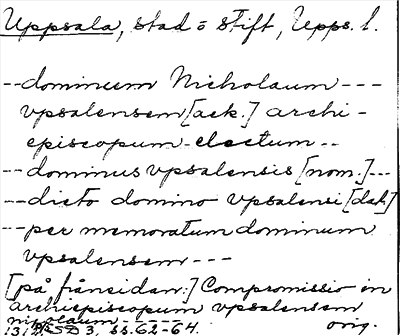 Uppsala, stad o stift, Upps. l.
--dominum Nicholaum ---
vpsalensem [ack.] archi-
episcopum electum --
--dominus vpsalensis [nom.] ---
--dicto domino vpsalensi [dat.]
--per memoratum dominum
vpsalensem ---
[på frånsidan:] Compromissio in
archiepiscopum vpsalensem
nicolaum -----
SD 3, ss. 62-64. orig.